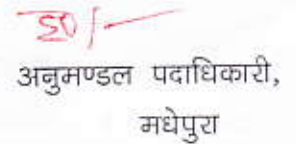 ह०/—
अनुमण्डल पदाधिकारी,
मधेपुरा